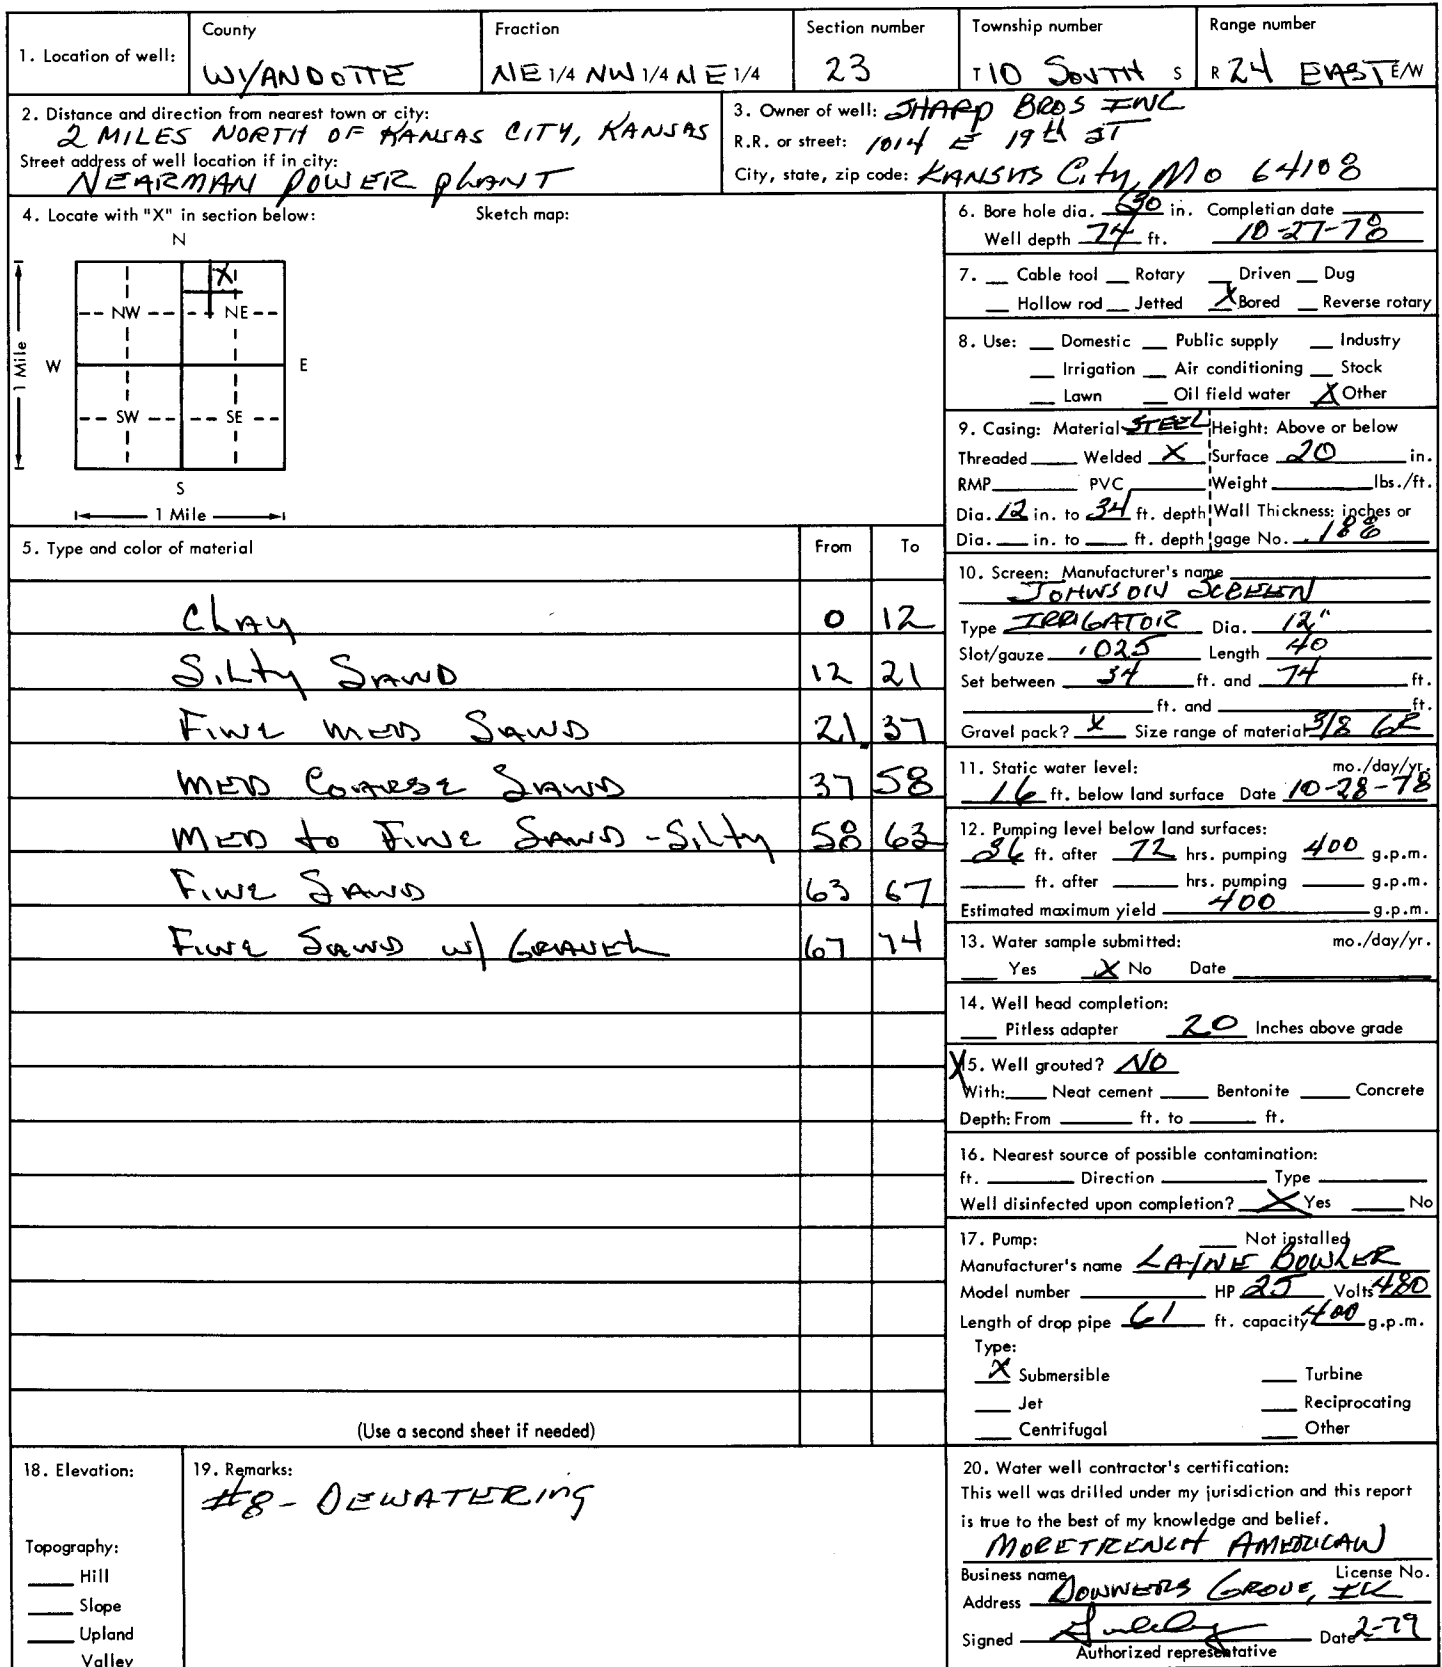 1. Location of well:
County
WYANDOTTE
Fraction
NE 1/4 NW 1/4 NE 1/4
Section number
23
Township number
T 10 SOUTH S
Range number
R 24 EAST E/W
2. Distance and direction from nearest town or city:
2 MILES NORTH OF KANSAS CITY, KANSAS
Street address of well location if in city:
NEARMAN POWER PLANT
3. Owner of well: SHARP BROS INC
R.R. or street: 1014 E 19th ST
City, state, zip code: KANSAS City, MO 64108
4. Locate with "X" in section below:
Sketch map:
N
X
NW NE
1 Mile
W E
SW SE
S
1 Mile
5. Type and color of material From To
Clay 0 12
Silty Sand 12 21
Fine Med Sand 21 37
Med Coarse Sand 37 58
Med to Fine Sand - Silty 58 63
Fine Sand 63 67
Fine Sand w/ Gravel 67 74
(Use a second sheet if needed)
6. Bore hole dia. 30 in. Completian date
Well depth 74 ft. 10-27-78
7. Cable tool Rotary Driven Dug
Hollow rod Jetted X Bored Reverse rotary
8. Use: Domestic Public supply Industry
Irrigation Air conditioning Stock
Lawn Oil field water X Other
9. Casing: Material STEEL Height: Above or below
Threaded Welded X Surface 20 in.
RMP PVC Weight lbs./ft.
Dia. 12 in. to 34 ft. depth Wall Thickness: inches or
Dia. in. to ft. depth gage No. .188
10. Screen: Manufacturer's name
JOHNSON SCREEN
Type IRRIGATOR Dia. 12"
Slot/gauze .025 Length 40
Set between 34 ft. and 74 ft.
ft. and ft.
Gravel pack? X Size range of material 3/8 GR
11. Static water level: mo./day/yr.
16 ft. below land surface Date 10-28-78
12. Pumping level below land surfaces:
36 ft. after 72 hrs. pumping 400 g.p.m.
ft. after hrs. pumping g.p.m.
Estimated maximum yield 400 g.p.m.
13. Water sample submitted: mo./day/yr.
Yes X No Date
14. Well head completion:
Pitless adapter 20 Inches above grade
X 15. Well grouted? NO
With: Neat cement Bentonite Concrete
Depth: From ft. to ft.
16. Nearest source of possible contamination:
ft. Direction Type
Well disinfected upon completion? X Yes No
17. Pump: Not installed
Manufacturer's name LAYNE BOWLER
Model number HP 25 Volts 480
Length of drop pipe 61 ft. capacity 400 g.p.m.
Type:
X Submersible Turbine
Jet Reciprocating
Centrifugal Other
18. Elevation:
Topography:
Hill
Slope
Upland
Valley
19. Remarks:
#8 - DEWATERING
20. Water well contractor's certification:
This well was drilled under my jurisdiction and this report
is true to the best of my knowledge and belief.
MORETRENCH AMERICAN
Business name License No.
Address DOWNERS GROVE, ILL
Signed Date 2-79
Authorized representative